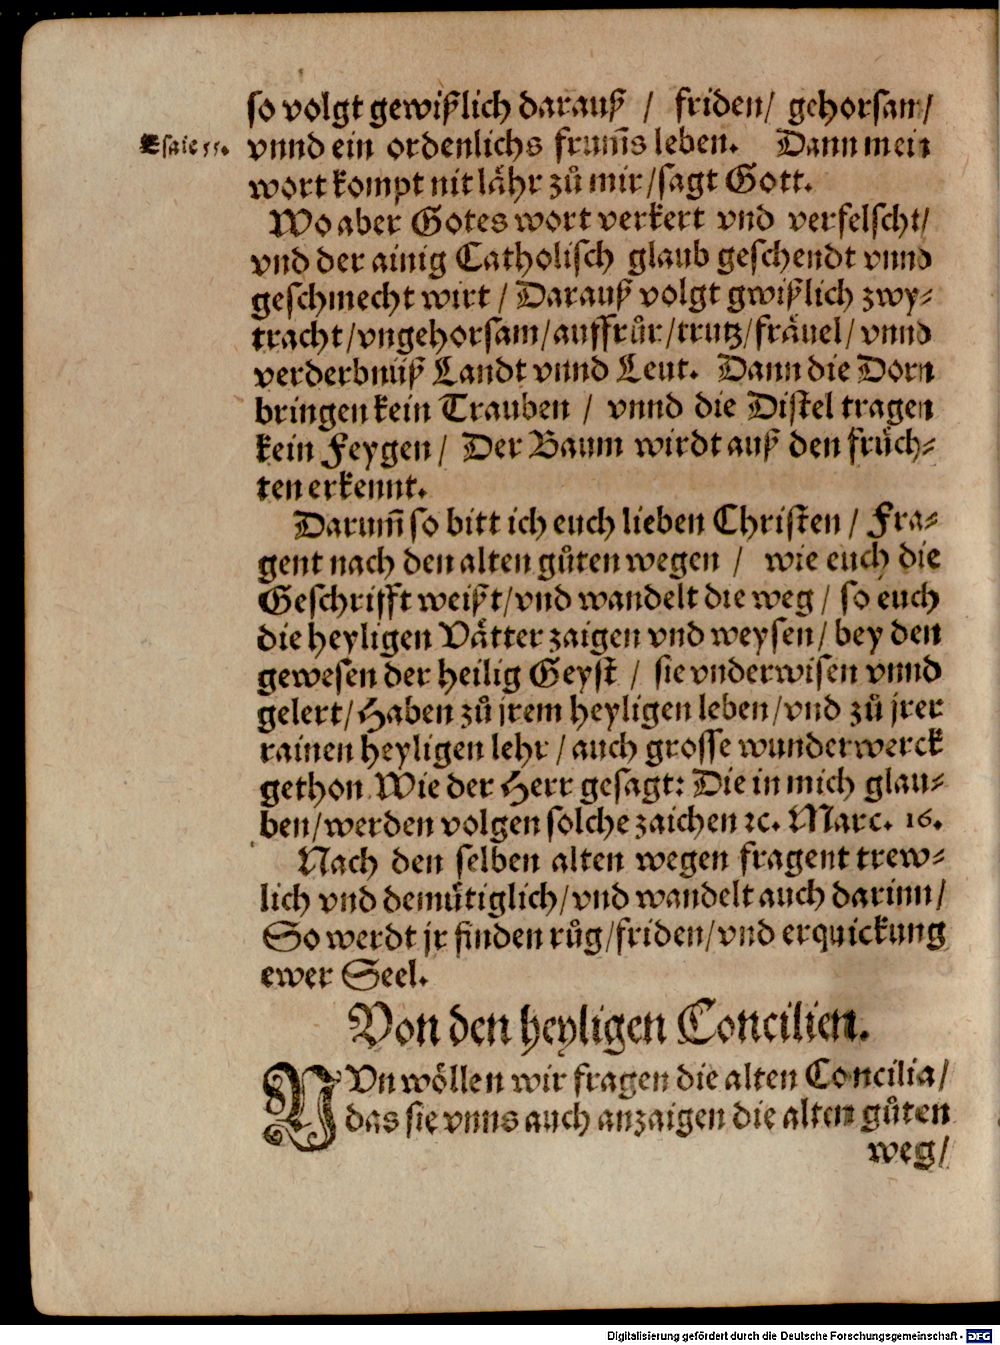 so volgt gewißlich darauß / friden/ gehorsam/
Esaie 55. vnnd ein ordenlichs frum̃s leben. Dann mein
wort kompt nit lähr zů mir/sagt Gott.
Wo aber Gotes wort verkert vnd verfelscht/
vnd der ainig Catholisch glaub geschendt vnnd
geschmecht wirt / Darauß volgt gwißlich zwy⸗
tracht/vngehorsam/auffrůr/trutz/fräuel/vnnd
verderbnuß Landt vnnd Leut. Dann die Dorn
bringen kein Trauben / vnnd die Distel tragen
kein Feygen / Der Baum wirdt auß den früch⸗
ten erkennt.
Darum̃ so bitt ich euch lieben Christen / Fra⸗
gent nach den alten gůten wegen / wie euch die
Geschrifft weißt/vnd wandelt die weg / so euch
die heyligen Vätter zaigen vnd weysen/ bey den
gewesen der heilig Geyst / sie vnderwisen vnnd
gelert/ Haben zů jrem heyligen leben/vnd zů jrer
rainen heyligen lehr / auch grosse wunderwerck
gethon. Wie der Herr gesagt: Die in mich glau⸗
ben/werden volgen solche zaichen ꝛc. Marc. 16.
Nach den selben alten wegen fragent trew⸗
lich vnd demütiglich/vnd wandelt auch darinn/
So werdt jr finden růg/friden/vnd erquickung
ewer Seel.
Von den heyligen Concilien.
NVn wöllen wir fragen die alten Concilia/
das sie vnns auch anzaigen die alten gůten
weg/
Digitalisierung gefördert durch die Deutsche Forschungsgemeinschaft - DFG